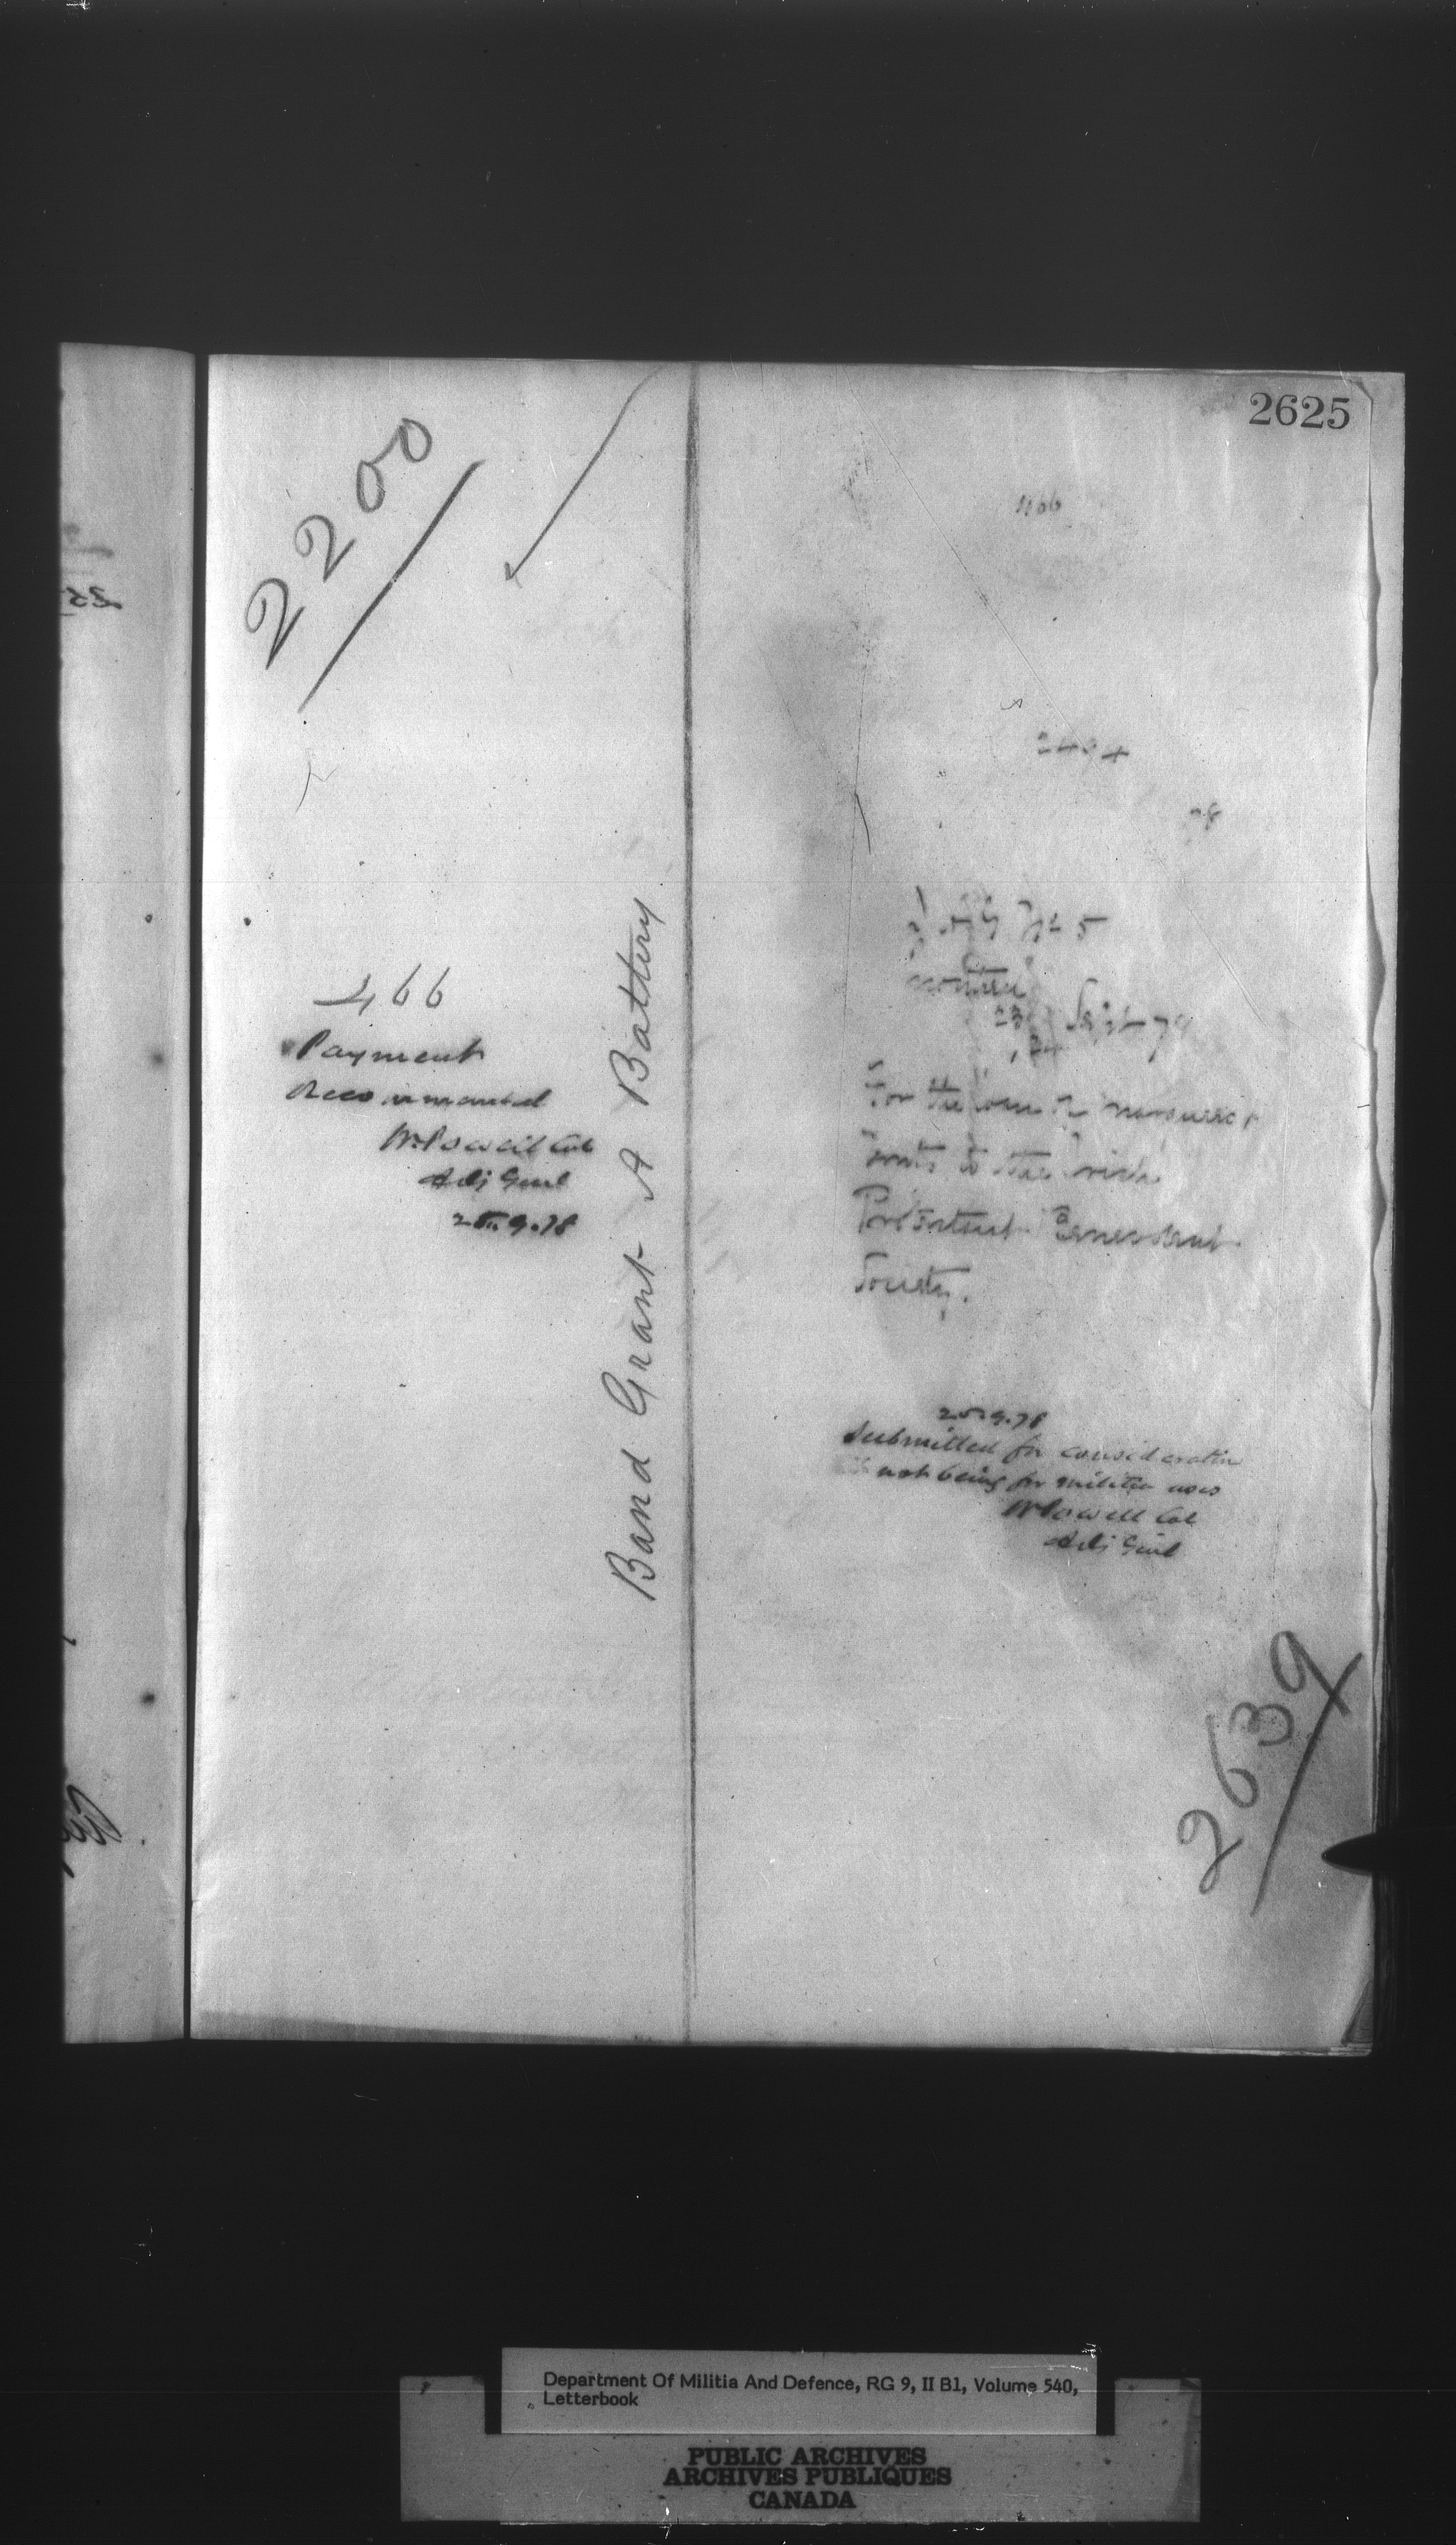 2625
2200
466
Payment
Recommended
W Powell Col
Adj Genl
25.9.78
Band Grant A Battery
2494
78
No 5
Sept 78
For the loan of
to the Irish
Protestant Benevolent
Society.
25.9.78
Submitted for consideration
not being for militia uses
W Powell Col
Adj Genl
2639
Department Of Militia And Defence, RG 9, II B1, Volume 540,
Letterbook
PUBLIC ARCHIVES
ARCHIVES PUBLIQUES
CANADA